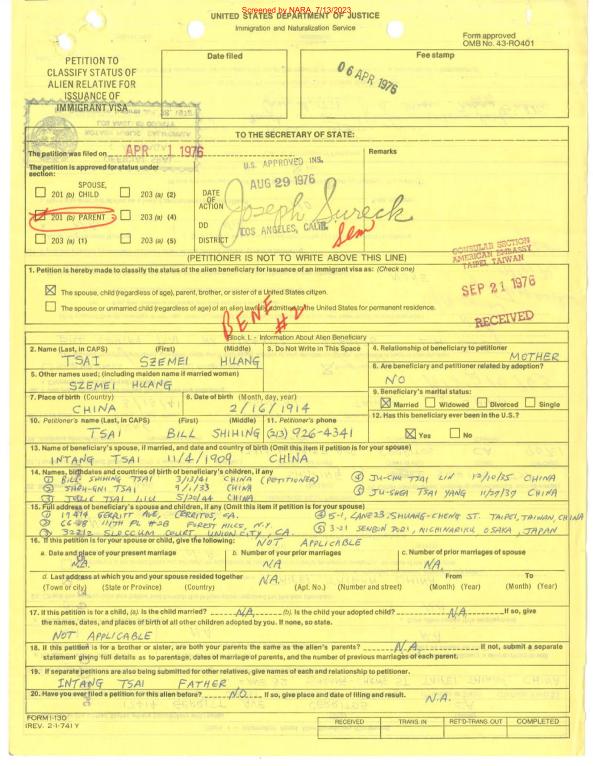 Screened by NARA, 7/13/2023
UNITED STATES DEPARTMENT OF JUSTICE
Immigration and Naturalization Service
Form approved
OMB No. 43-RO401
PETITION TO
CLASSIFY STATUS OF
ALIEN RELATIVE FOR
ISSUANCE OF
IMMIGRANT VISA
Date filed
Fee stamp
06 APR 1976
TO THE SECRETARY OF STATE:
The petition was filed on APR 1 1976
Remarks
The petition is approved for status under
section:
SPOUSE,
201 (b) CHILD
203 (a) (2)
201 (b) PARENT
203 (a) (4)
203 (a) (1)
203 (a) (5)
DATE
OF
ACTION
DD
DISTRICT
U.S. APPROVED INS.
AUG 29 1976
Joseph Sureck
LOS ANGELES, CALIF.
CONSULAR SECTION
AMERICAN EMBASSY
TAIPEI, TAIWAN
SEP 21 1976
RECEIVED
(PETITIONER IS NOT TO WRITE ABOVE THIS LINE)
1. Petition is hereby made to classify the status of the alien beneficiary for issuance of an immigrant visa as: (Check one)
The spouse, child (regardless of age), parent, brother, or sister of a United States citizen.
The spouse or unmarried child (regardless of age) of an alien lawfully admitted to the United States for permanent residence.
BENE
#2
Block I. - Information About Alien Beneficiary
2. Name (Last, in CAPS) (First) (Middle)
TSAI SZEMEI HUANG
3. Do Not Write in This Space
4. Relationship of beneficiary to petitioner
MOTHER
5. Other names used; (including maiden name if married woman)
SZEMEI HUANG
6. Are beneficiary and petitioner related by adoption?
NO
7. Place of birth (Country)
CHINA
8. Date of birth (Month, day, year)
2/16/1914
9. Beneficiary's marital status:
Married Widowed Divorced Single
10. Petitioner's name (Last, in CAPS) (First) (Middle)
TSAI BILL SHIHING
11. Petitioner's phone
(213) 926-4341
12. Has this beneficiary ever been in the U.S.?
Yes No
13. Name of beneficiary's spouse, if married, and date and country of birth (Omit this item if petition is for your spouse)
INTANG TSAI 11/4/1909 CHINA
14. Names, birthdates and countries of birth of beneficiary's children, if any
① BILL SHIHING TSAI 3/13/41 CHINA (PETITIONER)
④ JU-CHU TSAI LIN 12/10/35 CHINA
② TSAI 9/1/33 CHINA
⑤ TSAI YANG 11/27/37 CHINA
③ JULIE TSAI LIU 5/20/44 CHINA
15. Full address of beneficiary's spouse and children, if any (Omit this item if petition is for your spouse)
① GERRITT AVE, CERRITOS, CA.
④ 5-1, LANE 23, SHUANG-CHENG ST. TAIPEI, TAIWAN, CHINA
② PL #2B FOREST HILLS, N.Y.
③ 32212 SLOCCUM COURT, UNION CITY, CA.
⑤ 3-21 SENBON DORI, NICHINARIKU OSAKA, JAPAN
16. If this petition is for your spouse or child, give the following: NOT APPLICABLE
a. Date and place of your present marriage
N.A.
b. Number of your prior marriages
NA
c. Number of prior marriages of spouse
N.A.
d. Last address at which you and your spouse resided together N.A. From To
(Town or city) (State or Province) (Country) (Apt. No.) (Number and street) (Month) (Year) (Month) (Year)
17. If this petition is for a child, (a). Is the child married? N.A. (b). Is the child your adopted child? N.A. If so, give
the names, dates, and places of birth of all other children adopted by you. If none, so state.
NOT APPLICABLE
18. If this petition is for a brother or sister, are both your parents the same as the alien's parents? N.A. If not, submit a separate
statement giving full details as to parentage, dates of marriage of parents, and the number of previous marriages of each parent.
19. If separate petitions are also being submitted for other relatives, give names of each and relationship to petitioner.
INTANG TSAI FATHER
20. Have you ever filed a petition for this alien before? NO If so, give place and date of filing and result. N.A.
FORM I-130
(REV. 2-1-74) Y
RECEIVED
TRANS. IN
RET'D-TRANS. OUT
COMPLETED